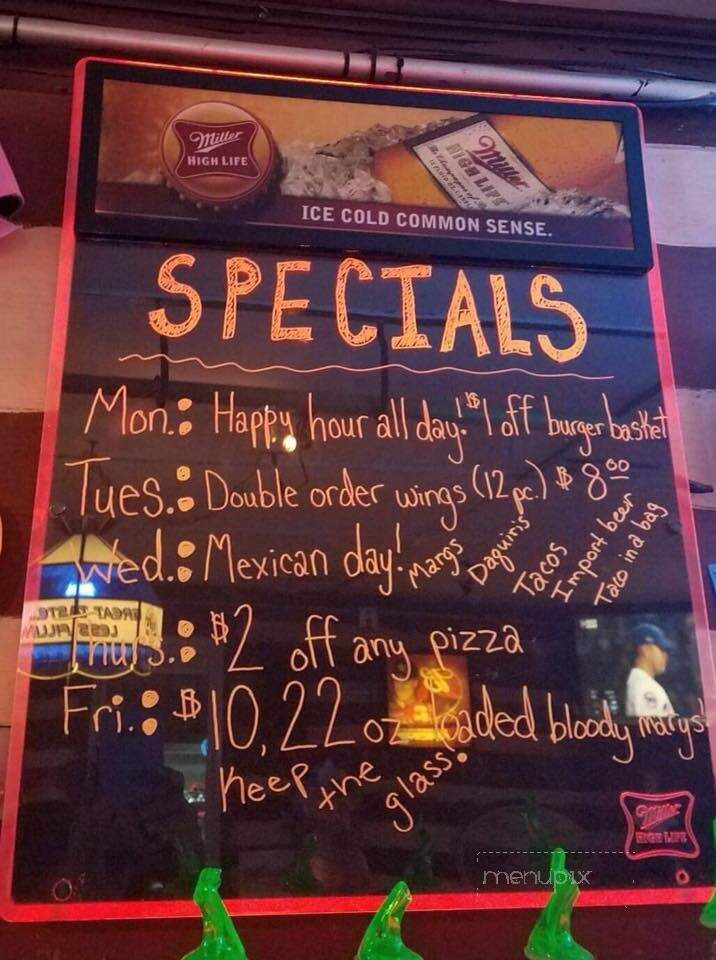 Miller
HIGH LIFE
Miller
HIGH LIFE
The Champagne of
ICE COLD COMMON SENSE.
SPECIALS
Mon.: Happy hour all day! $1 off burger basket
Tues.: Double order wings (12 pc.) $8.00
Wed.: Mexican day! Margs Daquiris Tacos Import beer Taco in a bag
GREAT TASTE..
LESS FILLIN
Thurs.: $2 off any pizza
Fri.: $10, 22 oz loaded bloody marys!
Keep the glass!
Miller
HIGH LIFE
menupix